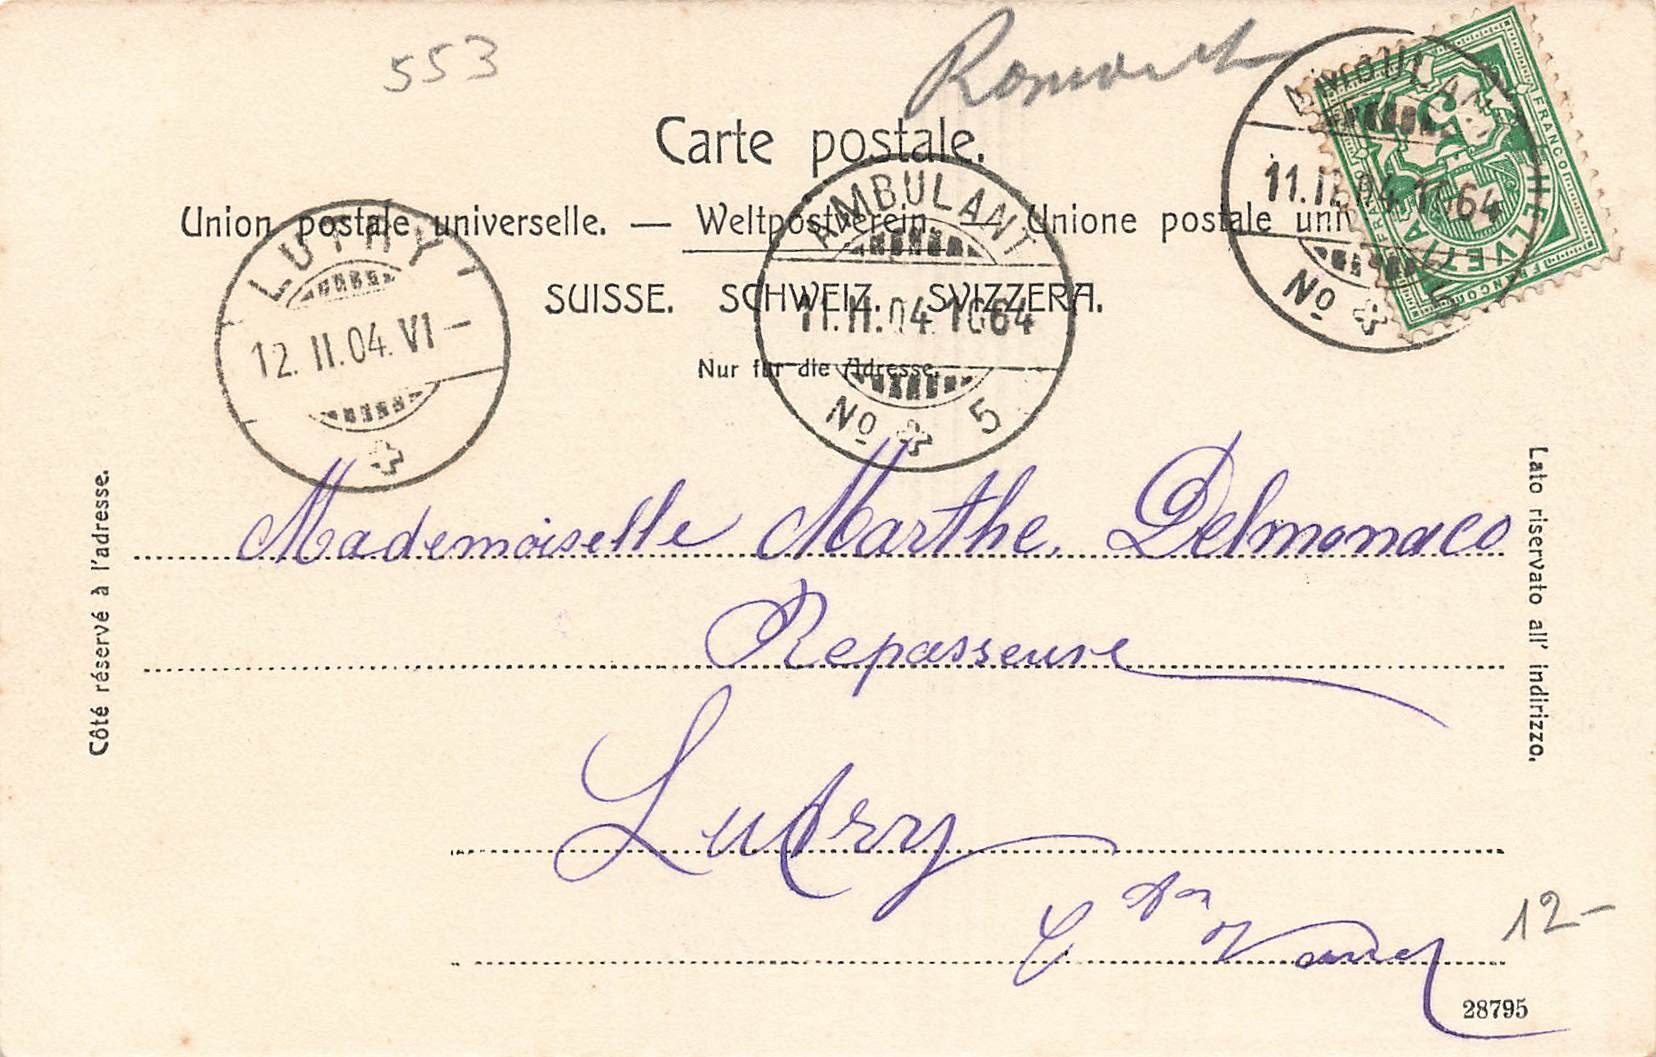 553
Romont
Carte postale.
Union postale universelle. — Weltpostverein — Unione postale uni
SUISSE. SCHWEIZ. SVIZZERA.
Nur für die Adresse.
LUTRY
12.II.04.VI–
AMBULANT
11.II.04.1064
No 5
AMBULANT
11.II.04.1064
No
FRANCO
HELVETIA
5
Côté réservé à l'adresse.
Lato riservato all' indirizzo.
Mademoiselle Marthe Delmonaco
Repasseuse
Lutry
Cton Vaud
12–
28795